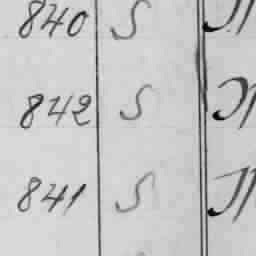 840 S
842 S
841 S